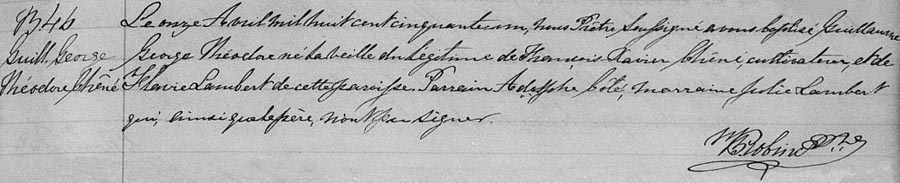 B46
Guill. George
Théodore Chêné
Le onze Aout mil huit cent cinquante cinq, nous Prêtre Soussigné avons baptisé Guillaume
George Théodore né la veille du légitime de Francois Xavier Chêné, cultivateur, et de
Flavie Lambert de cette paroisse. Parrain Adolphe Côté, marraine Julie Lambert
qui, ainsi que le père, n'ont pu signer.
Ptre